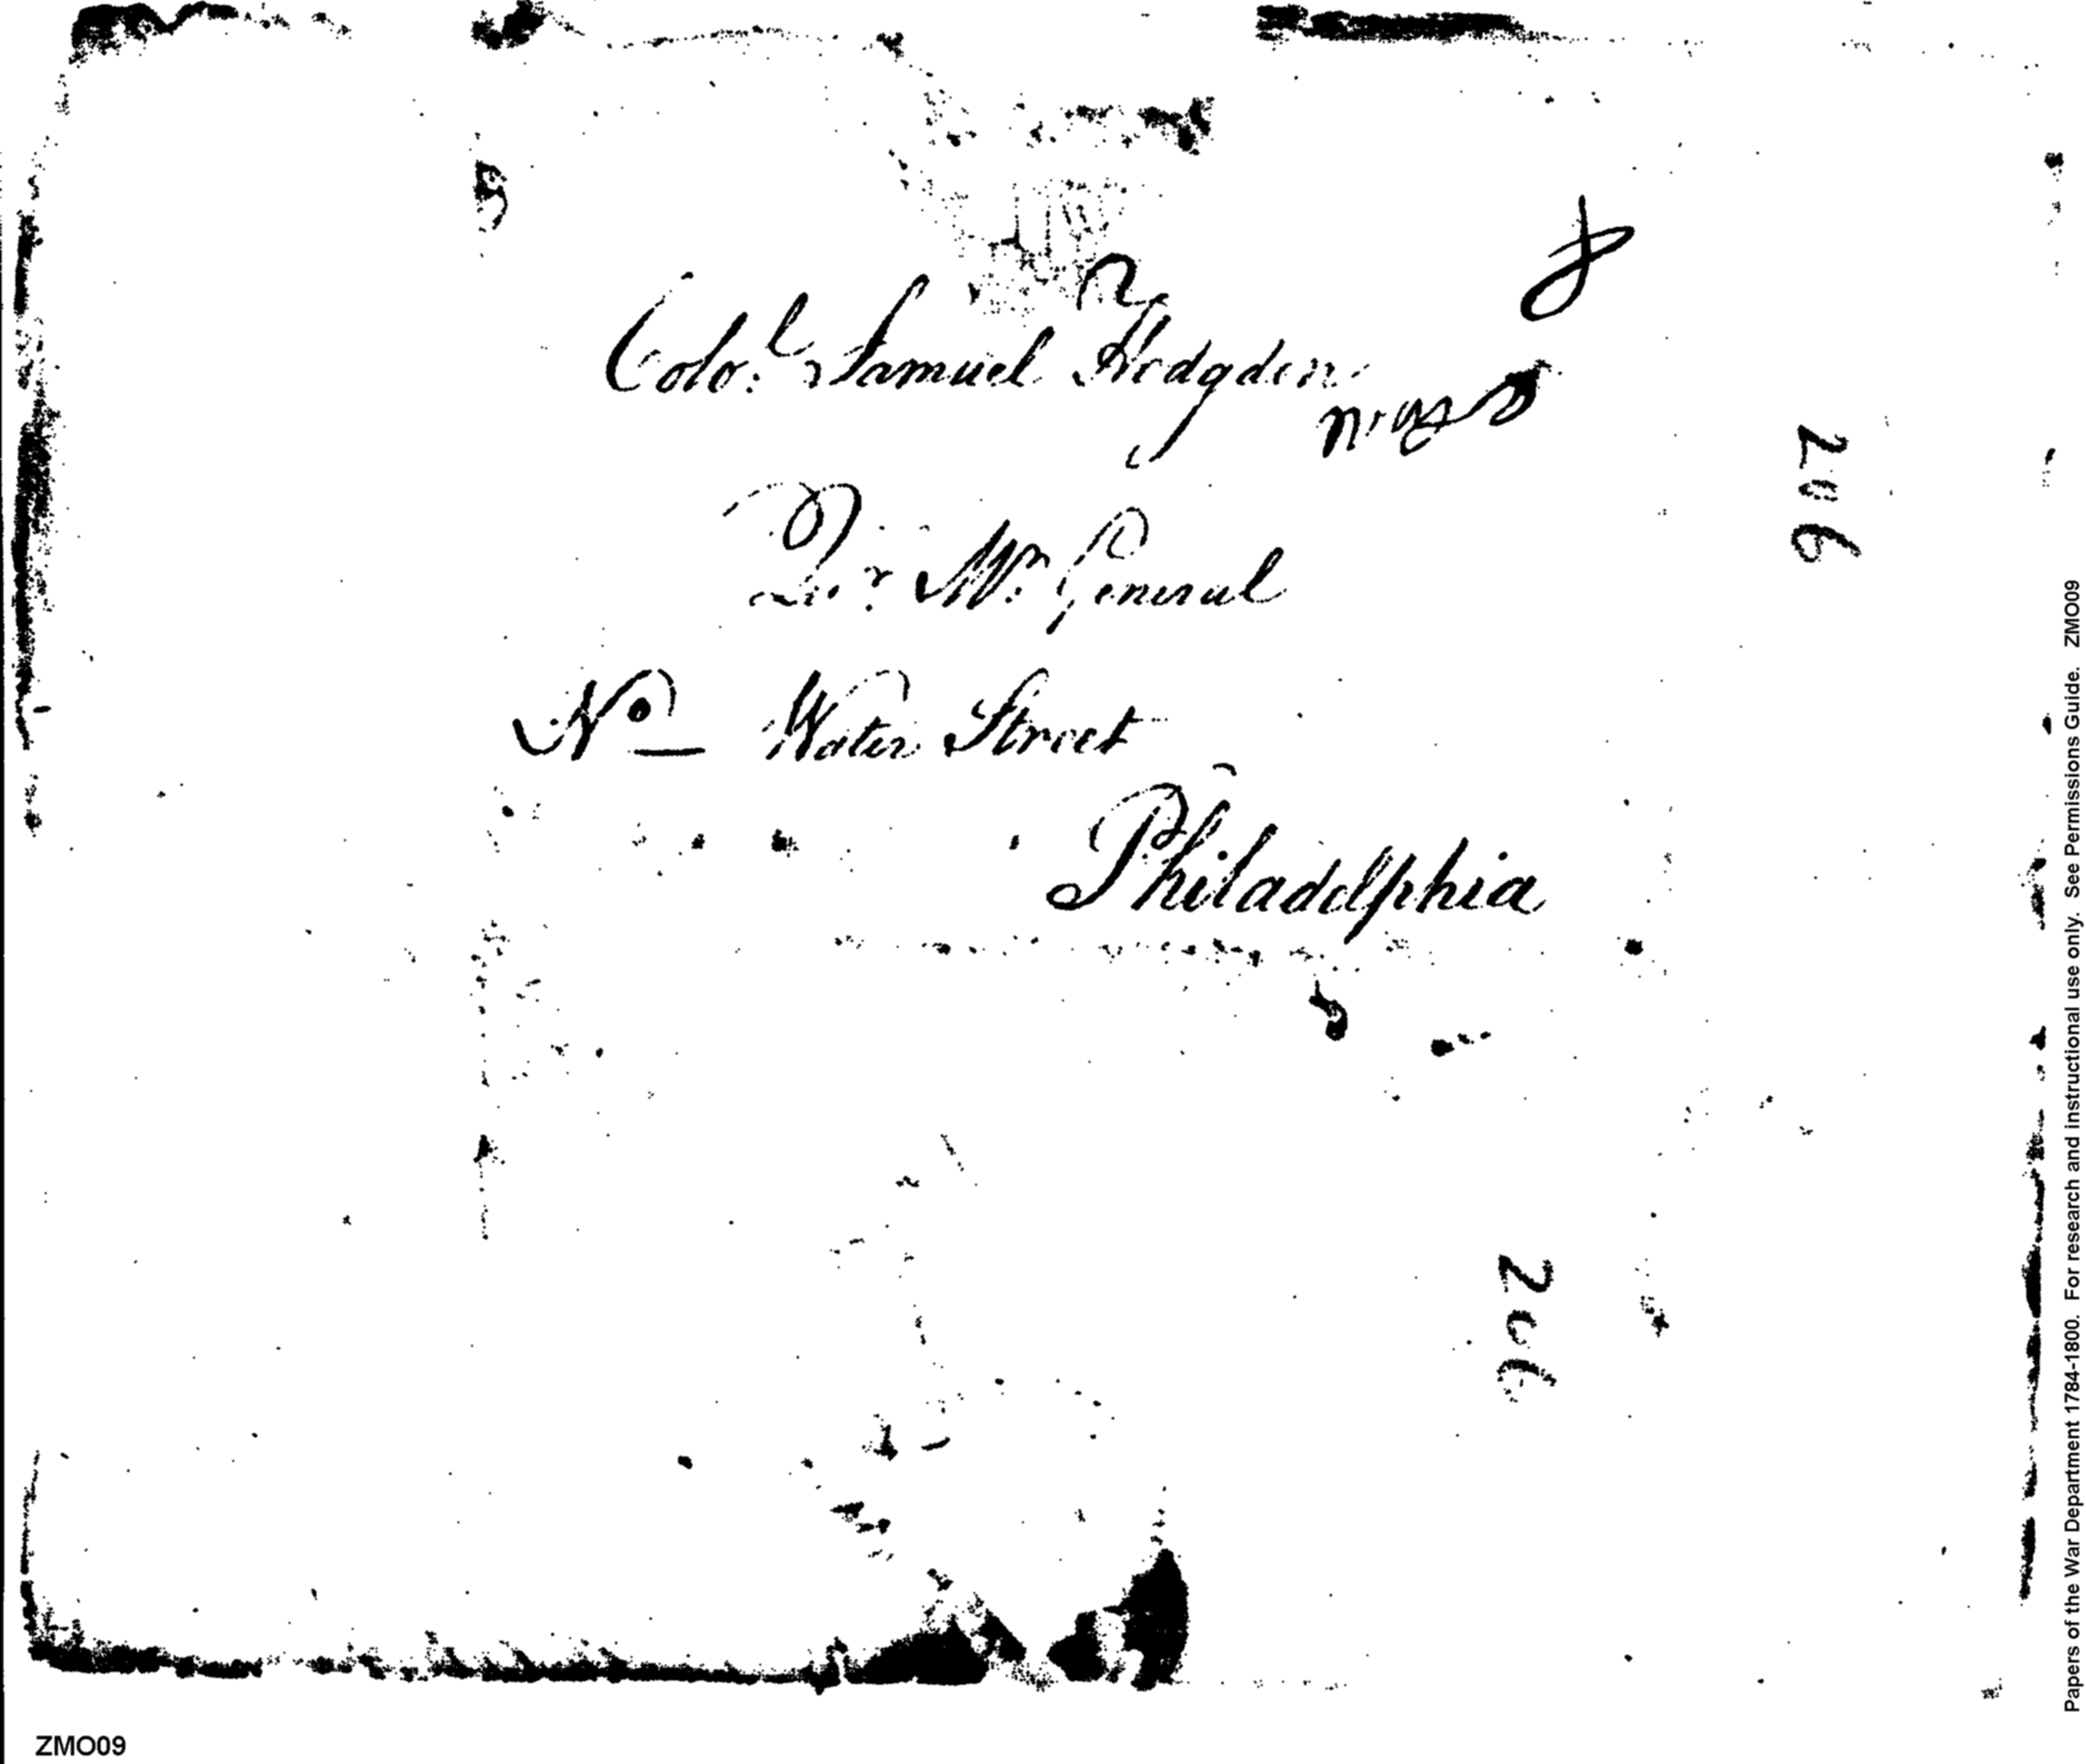 Colo.l Samuel Hodgden
Qr. Mr. General
No Water Street
Philadelphia
206
206
Papers of the War Department 1784-1800. For research and instructional use only. See Permissions Guide. ZMO09
ZMO09